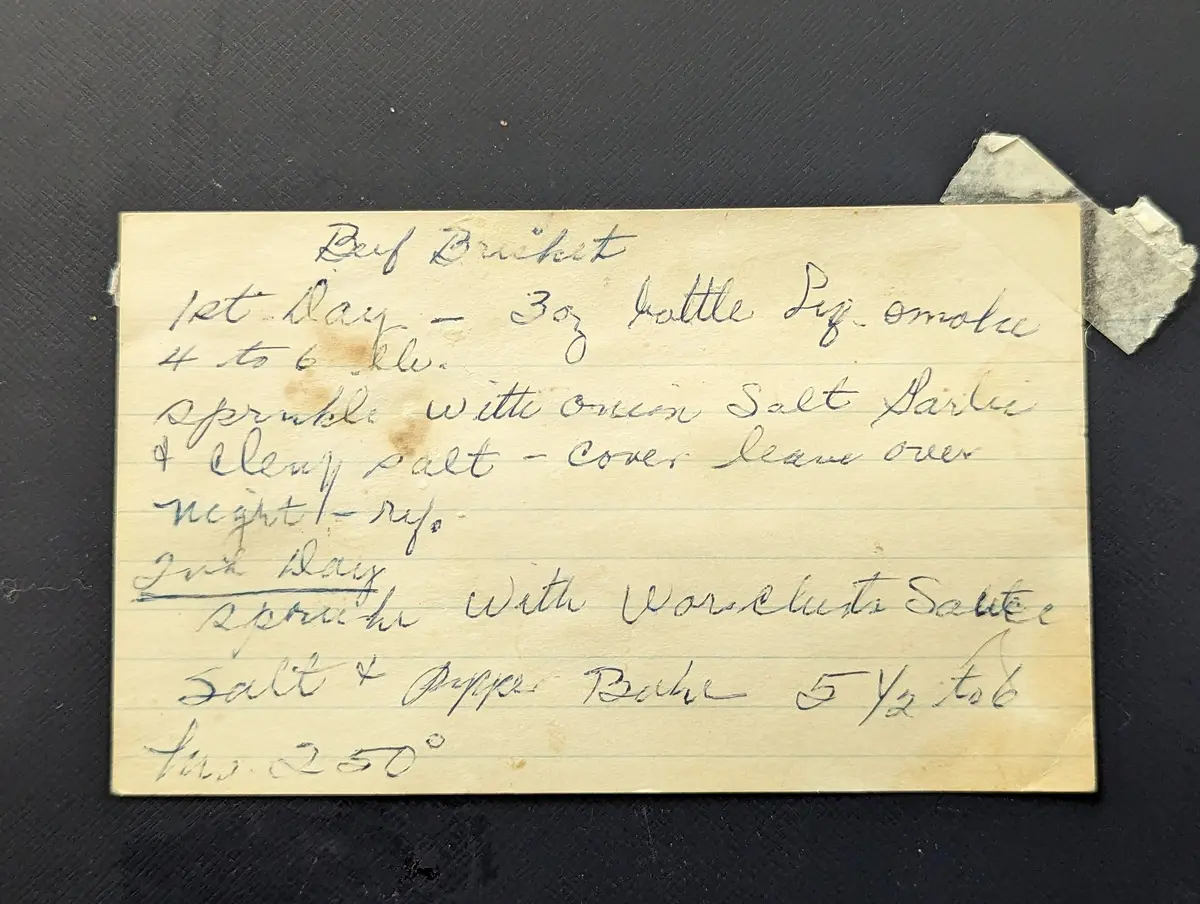 Beef Brisket
1st Day - 3oz bottle Liq. smoke
4 to 6 lb.
sprinkle with onion Salt Garlic
& Clery salt - cover leave over
night - ref.
2nd Day
sprinkle with Sauce
Salt & Pepper Bake 5 1/2 to 6
hrs. 250°